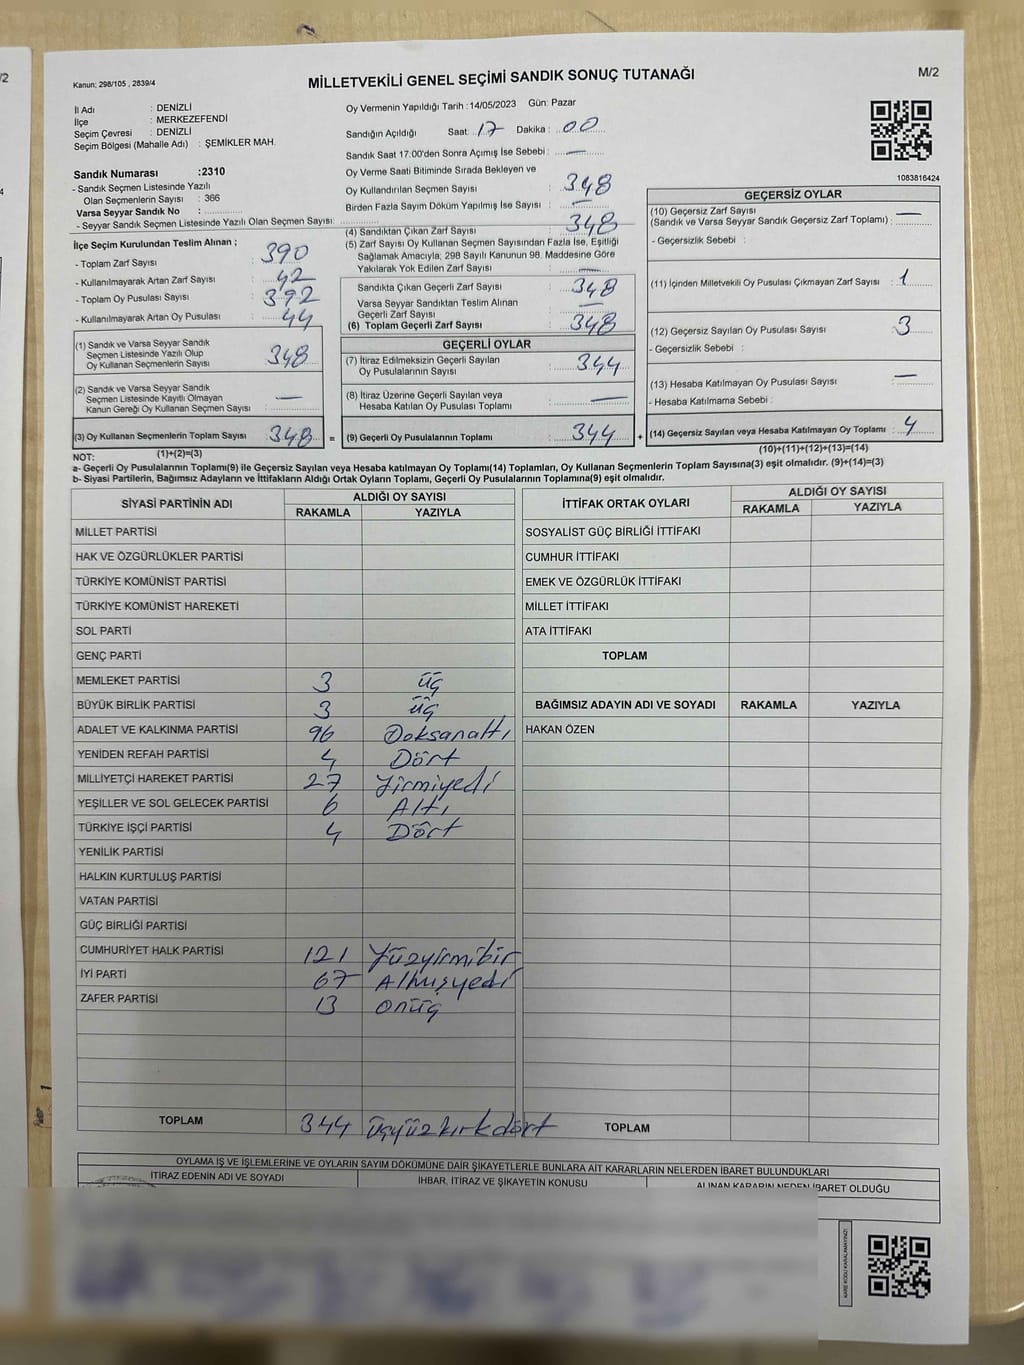 Kanun: 298/105 , 2839/4
MİLLETVEKİLİ GENEL SEÇİMİ SANDIK SONUÇ TUTANAĞI
M/2
İl Adı : DENİZLİ
İlçe : MERKEZEFENDİ
Seçim Çevresi : DENİZLİ
Seçim Bölgesi (Mahalle Adı) : ŞEMİKLER MAH.
Sandık Numarası :2310
- Sandık Seçmen Listesinde Yazılı
Olan Seçmenlerin Sayısı : 366
Varsa Seyyar Sandık No :
- Seyyar Sandık Seçmen Listesinde Yazılı Olan Seçmen Sayısı:
İlçe Seçim Kurulundan Teslim Alınan ;
- Toplam Zarf Sayısı : 390
- Kullanılmayarak Artan Zarf Sayısı : 42
- Toplam Oy Pusulası Sayısı : 392
- Kullanılmayarak Artan Oy Pusulası : 44
(1) Sandık ve Varsa Seyyar Sandık
Seçmen Listesinde Yazılı Olup
Oy Kullanan Seçmenlerin Sayısı : 348
(2) Sandık ve Varsa Seyyar Sandık
Seçmen Listesinde Kayıtlı Olmayan
Kanun Gereği Oy Kullanan Seçmen Sayısı : —
(3) Oy Kullanan Seçmenlerin Toplam Sayısı : 348
(1)+(2)=(3)
Oy Vermenin Yapıldığı Tarih :14/05/2023 Gün: Pazar
Sandığın Açıldığı Saat: 17 Dakika : 00
Sandık Saat 17.00'den Sonra Açımış İse Sebebi : —
Oy Verme Saati Bitiminde Sırada Bekleyen ve
Oy Kullandırılan Seçmen Sayısı : 348
Birden Fazla Sayım Döküm Yapılmış İse Sayısı : —
(4) Sandıktan Çıkan Zarf Sayısı : 348
(5) Zarf Sayısı Oy Kullanan Seçmen Sayısından Fazla İse, Eşitliği
Sağlamak Amacıyla; 298 Sayılı Kanunun 98. Maddesine Göre
Yakılarak Yok Edilen Zarf Sayısı : —
Sandıkta Çıkan Geçerli Zarf Sayısı : 348
Varsa Seyyar Sandıktan Teslim Alınan
Geçerli Zarf Sayısı : —
(6) Toplam Geçerli Zarf Sayısı : 348
GEÇERLİ OYLAR
(7) İtiraz Edilmeksizin Geçerli Sayılan
Oy Pusulalarının Sayısı : 344
(8) İtiraz Üzerine Geçerli Sayılan veya
Hesaba Katılan Oy Pusulası Toplamı : —
= (9) Geçerli Oy Pusulalarının Toplamı : 344 +
1083816424
GEÇERSİZ OYLAR
(10) Geçersiz Zarf Sayısı —
(Sandık ve Varsa Seyyar Sandık Geçersiz Zarf Toplamı) :
- Geçersizlik Sebebi :
(11) İçinden Milletvekili Oy Pusulası Çıkmayan Zarf Sayısı : 1
(12) Geçersiz Sayılan Oy Pusulası Sayısı : 3
- Geçersizlik Sebebi :
(13) Hesaba Katılmayan Oy Pusulası Sayısı : —
- Hesaba Katılmama Sebebi :
(14) Geçersiz Sayılan veya Hesaba Katılmayan Oy Toplamı : 4
(10)+(11)+(12)+(13)=(14)
NOT:
a- Geçerli Oy Pusulalarının Toplamı(9) ile Geçersiz Sayılan veya Hesaba katılmayan Oy Toplamı(14) Toplamları, Oy Kullanan Seçmenlerin Toplam Sayısına(3) eşit olmalıdır. (9)+(14)=(3)
b- Siyasi Partilerin, Bağımsız Adayların ve İttifakların Aldığı Ortak Oyların Toplamı, Geçerli Oy Pusulalarının Toplamına(9) eşit olmalıdır.
SİYASİ PARTİNİN ADI ALDIĞI OY SAYISI
RAKAMLA YAZIYLA
MİLLET PARTİSİ
HAK VE ÖZGÜRLÜKLER PARTİSİ
TÜRKİYE KOMÜNİST PARTİSİ
TÜRKİYE KOMÜNİST HAREKETİ
SOL PARTİ
GENÇ PARTİ
MEMLEKET PARTİSİ 3 üç
BÜYÜK BİRLİK PARTİSİ 3 üç
ADALET VE KALKINMA PARTİSİ 96 Doksanaltı
YENİDEN REFAH PARTİSİ 4 Dört
MİLLİYETÇİ HAREKET PARTİSİ 27 Yirmiyedi
YEŞİLLER VE SOL GELECEK PARTİSİ 6 Altı
TÜRKİYE İŞÇİ PARTİSİ 4 Dört
YENİLİK PARTİSİ
HALKIN KURTULUŞ PARTİSİ
VATAN PARTİSİ
GÜÇ BİRLİĞİ PARTİSİ
CUMHURİYET HALK PARTİSİ 121 Yüzyirmibir
İYİ PARTİ 67 Altmışyedi
ZAFER PARTİSİ 13 onüç
TOPLAM 344 üçyüzkırkdört
İTTİFAK ORTAK OYLARI ALDIĞI OY SAYISI
RAKAMLA YAZIYLA
SOSYALİST GÜÇ BİRLİĞİ İTTİFAKI
CUMHUR İTTİFAKI
EMEK VE ÖZGÜRLÜK İTTİFAKI
MİLLET İTTİFAKI
ATA İTTİFAKI
TOPLAM
BAĞIMSIZ ADAYIN ADI VE SOYADI RAKAMLA YAZIYLA
HAKAN ÖZEN
TOPLAM
OYLAMA İŞ VE İŞLEMLERİNE VE OYLARIN SAYIM DÖKÜMÜNE DAİR ŞİKAYETLERLE BUNLARA AİT KARARLARIN NELERDEN İBARET BULUNDUKLARI
İTİRAZ EDENİN ADI VE SOYADI İHBAR, İTİRAZ VE ŞİKAYETİN KONUSU ALINAN KARARIN NEDEN İBARET OLDUĞU
KARE KODU KARALAMAYINIZ!